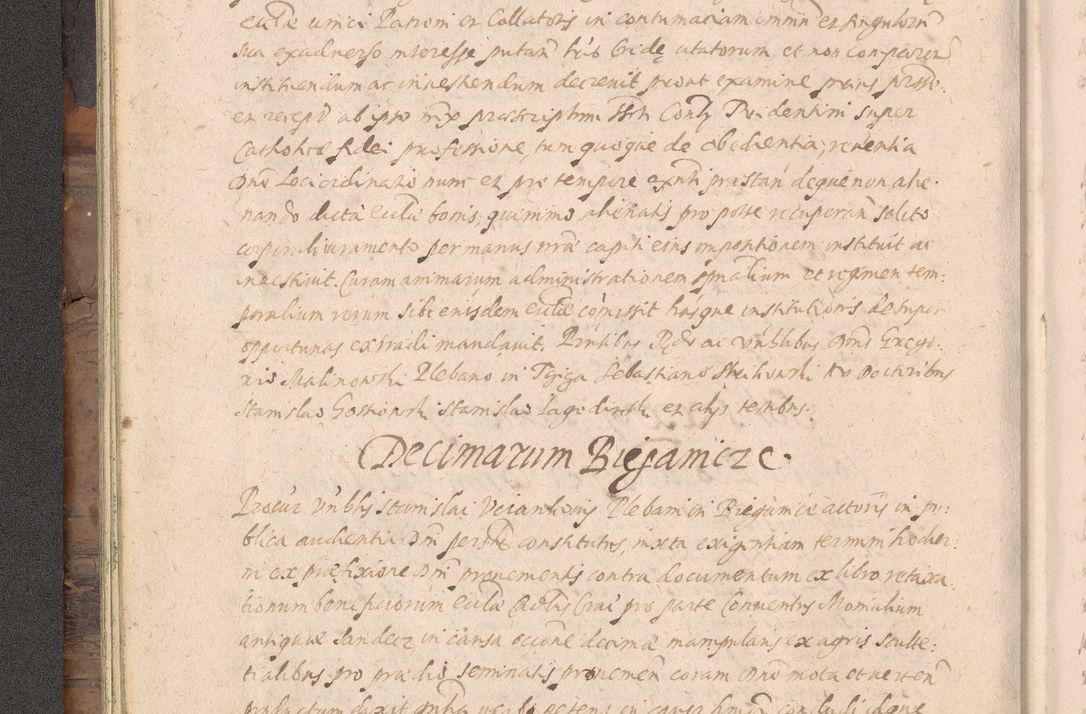 ecclae unici Patroni et Collatoris in contumaciam omnium et singulorum
sua exadverso interesse putan̄ citatorum et non comparen̄
instituendum ac investiendum decrevit prout examine prius
et recepto ab ipso iux praescriptum Sti Concy Tridentini super
Catholicae fidei professione, tum quoque de obedientia, reverentia
Dno Loci ordinario nunc et pro tempore exnti praestan̄ deque non alie
nando dictae ecclae bonis, quinimmo alienatis pro posse recuperan̄ solito
corporali iuramento per manus nrae capiti eius impositionem instituit ac
investivit. Curam animarum administrationem spualium et regimen tem:
poralium rerum sibi eiusdem ecclae comissit hasque institutionis desuper
opportunas extradi mandavit. Pntibus Rdo ac Vnblibus Dnis Grego:
rio Malinowski Plebano in Sebastiano Doctoribus
Stanislao Gostkowski Stanislao et alys testibus.
Decimarum Biegonicze.
Procur Vnblis Stanislai Plebani in Biegonice actoris in pu:
blica audientia Dni person̄ constitutus, iuxta exigentiam termini hodier:
ni ex praefixione Dni provenientis contra documentum ex libro retaxa:
tionum beneficiorum ecclae Cathlis Crac pro parte Conventus Monialium
antiquae Sandecz in causa occne decimae manipularis ex agris sculte:
tialibus pro praedio seminatis provenien̄ coram Dno mota et verten̄
productum dixit in causa concludi